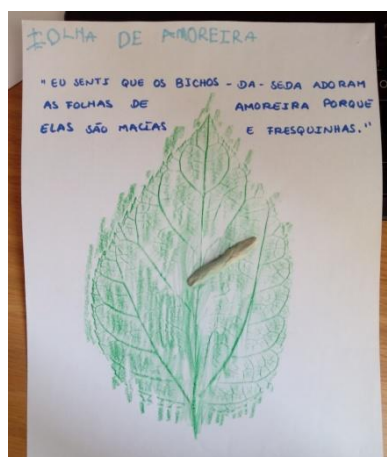 FOLHA DE AMOREIRA
"EU SENTI QUE OS BICHOS - DA - SEDA ADORAM
AS FOLHAS DE AMOREIRA PORQUE
ELAS SÃO MACIAS E FRESQUINHAS."